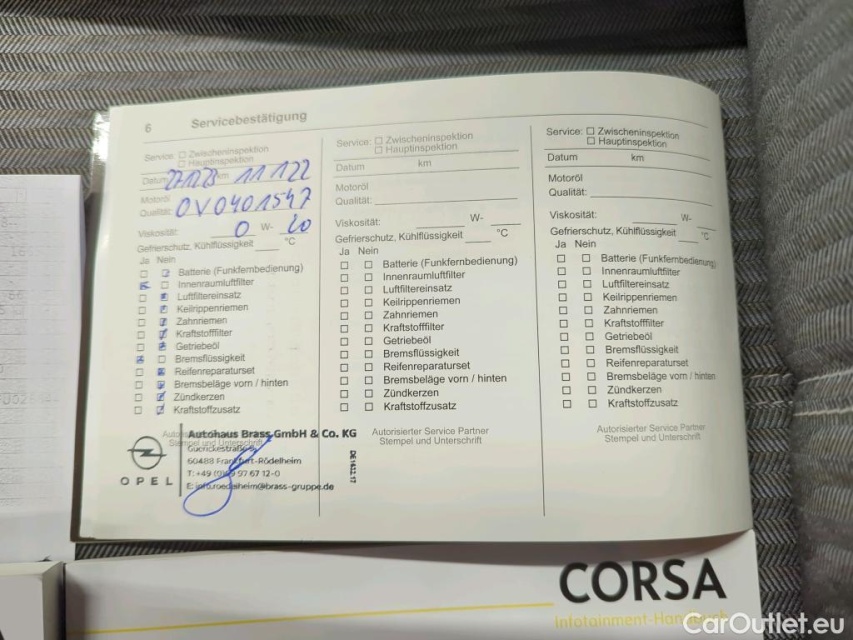 6 Servicebestätigung
Service: ☐ Zwischeninspektion
☐ Hauptinspektion
Datum km 11 122
Motoröl
Qualität: OV0401547
Viskosität: 0 W- 20
Gefrierschutz, Kühlflüssigkeit °C
Ja Nein
Batterie (Funkfernbedienung)
Innenraumluftfilter
Luftfiltereinsatz
Keilrippenriemen
Zahnriemen
Kraftstofffilter
Getriebeöl
Bremsflüssigkeit
Reifenreparaturset
Bremsbeläge vorn / hinten
Zündkerzen
Kraftstoffzusatz
Stempel und Unterschrift
Autohaus Brass GmbH & Co. KG
60488 Frankfurt-Rödelheim
E: info.roedelheim@brass-gruppe.de
OPEL
Service: ☐ Zwischeninspektion
☐ Hauptinspektion
Datum km
Motoröl
Qualität:
Viskosität: W-
Gefrierschutz, Kühlflüssigkeit °C
Ja Nein
☐ ☐ Batterie (Funkfernbedienung)
☐ ☐ Innenraumluftfilter
☐ ☐ Luftfiltereinsatz
☐ ☐ Keilrippenriemen
☐ ☐ Zahnriemen
☐ ☐ Kraftstofffilter
☐ ☐ Getriebeöl
☐ ☐ Bremsflüssigkeit
☐ ☐ Reifenreparaturset
☐ ☐ Bremsbeläge vorn / hinten
☐ ☐ Zündkerzen
☐ ☐ Kraftstoffzusatz
Autorisierter Service Partner
Stempel und Unterschrift
Service: ☐ Zwischeninspektion
☐ Hauptinspektion
Datum km
Motoröl
Qualität:
Viskosität: W-
Gefrierschutz, Kühlflüssigkeit °C
Ja Nein
☐ ☐ Batterie (Funkfernbedienung)
☐ ☐ Innenraumluftfilter
☐ ☐ Luftfiltereinsatz
☐ ☐ Keilrippenriemen
☐ ☐ Zahnriemen
☐ ☐ Kraftstofffilter
☐ ☐ Getriebeöl
☐ ☐ Bremsflüssigkeit
☐ ☐ Reifenreparaturset
☐ ☐ Bremsbeläge vorn / hinten
☐ ☐ Zündkerzen
☐ ☐ Kraftstoffzusatz
Autorisierter Service Partner
Stempel und Unterschrift
CORSA
CarOutlet.eu